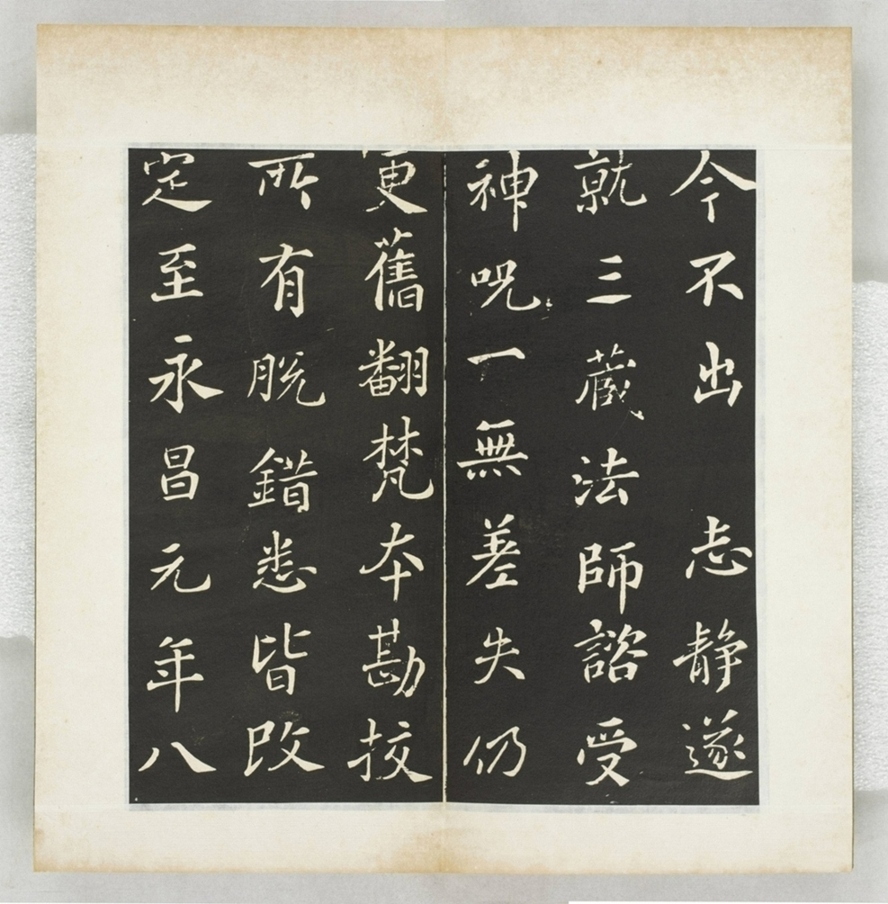 今不出 志静遂
就三藏法師諮受
神呪一無差失仍
更舊翻梵本勘挍
所有脱錯悉皆改
定至永昌元年八